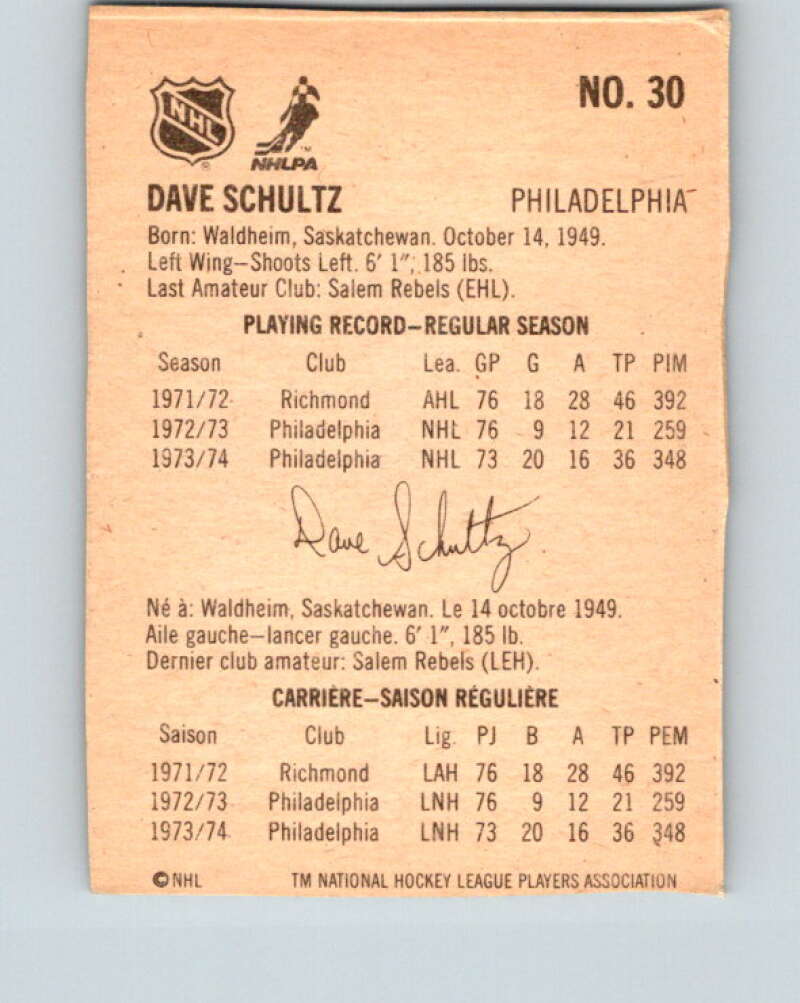 NHL
NHLPA
NO. 30
DAVE SCHULTZ PHILADELPHIA
Born: Waldheim, Saskatchewan. October 14, 1949.
Left Wing—Shoots Left. 6′ 1″, 185 lbs.
Last Amateur Club: Salem Rebels (EHL).
PLAYING RECORD—REGULAR SEASON
Season Club Lea. GP G A TP PIM
1971/72 Richmond AHL 76 18 28 46 392
1972/73 Philadelphia NHL 76 9 12 21 259
1973/74 Philadelphia NHL 73 20 16 36 348
Dave Schultz
Né à: Waldheim, Saskatchewan. Le 14 octobre 1949.
Aile gauche—lancer gauche. 6′ 1″, 185 lb.
Dernier club amateur: Salem Rebels (LEH).
CARRIÈRE—SAISON RÉGULIÈRE
Saison Club Lig. PJ B A TP PEM
1971/72 Richmond LAH 76 18 28 46 392
1972/73 Philadelphia LNH 76 9 12 21 259
1973/74 Philadelphia LNH 73 20 16 36 348
©NHL TM NATIONAL HOCKEY LEAGUE PLAYERS ASSOCIATION